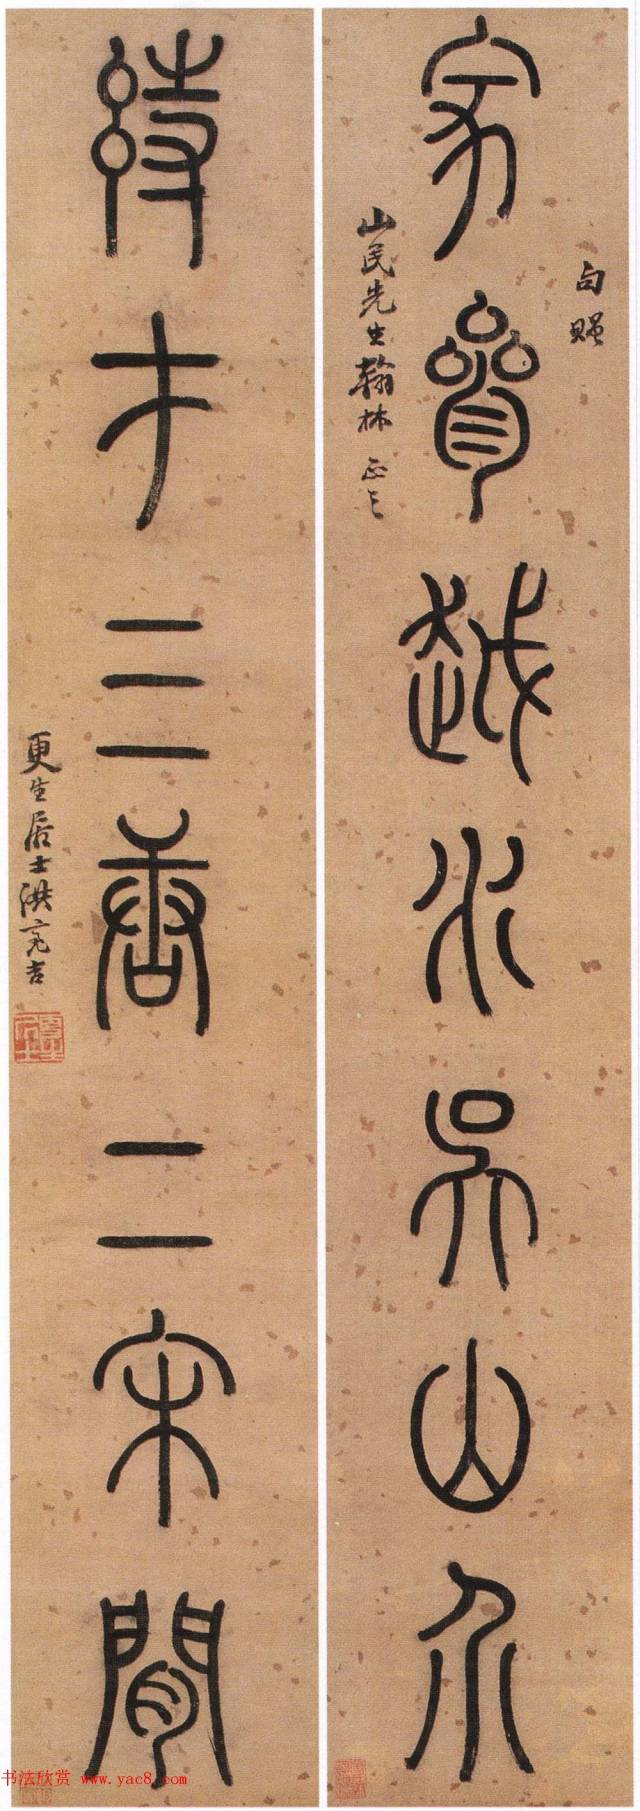 參越水吳山介
句贈
山民先生翰林正之
才三唐二宋間
更生居士洪亮吉
书法欣赏 www.yac8.com